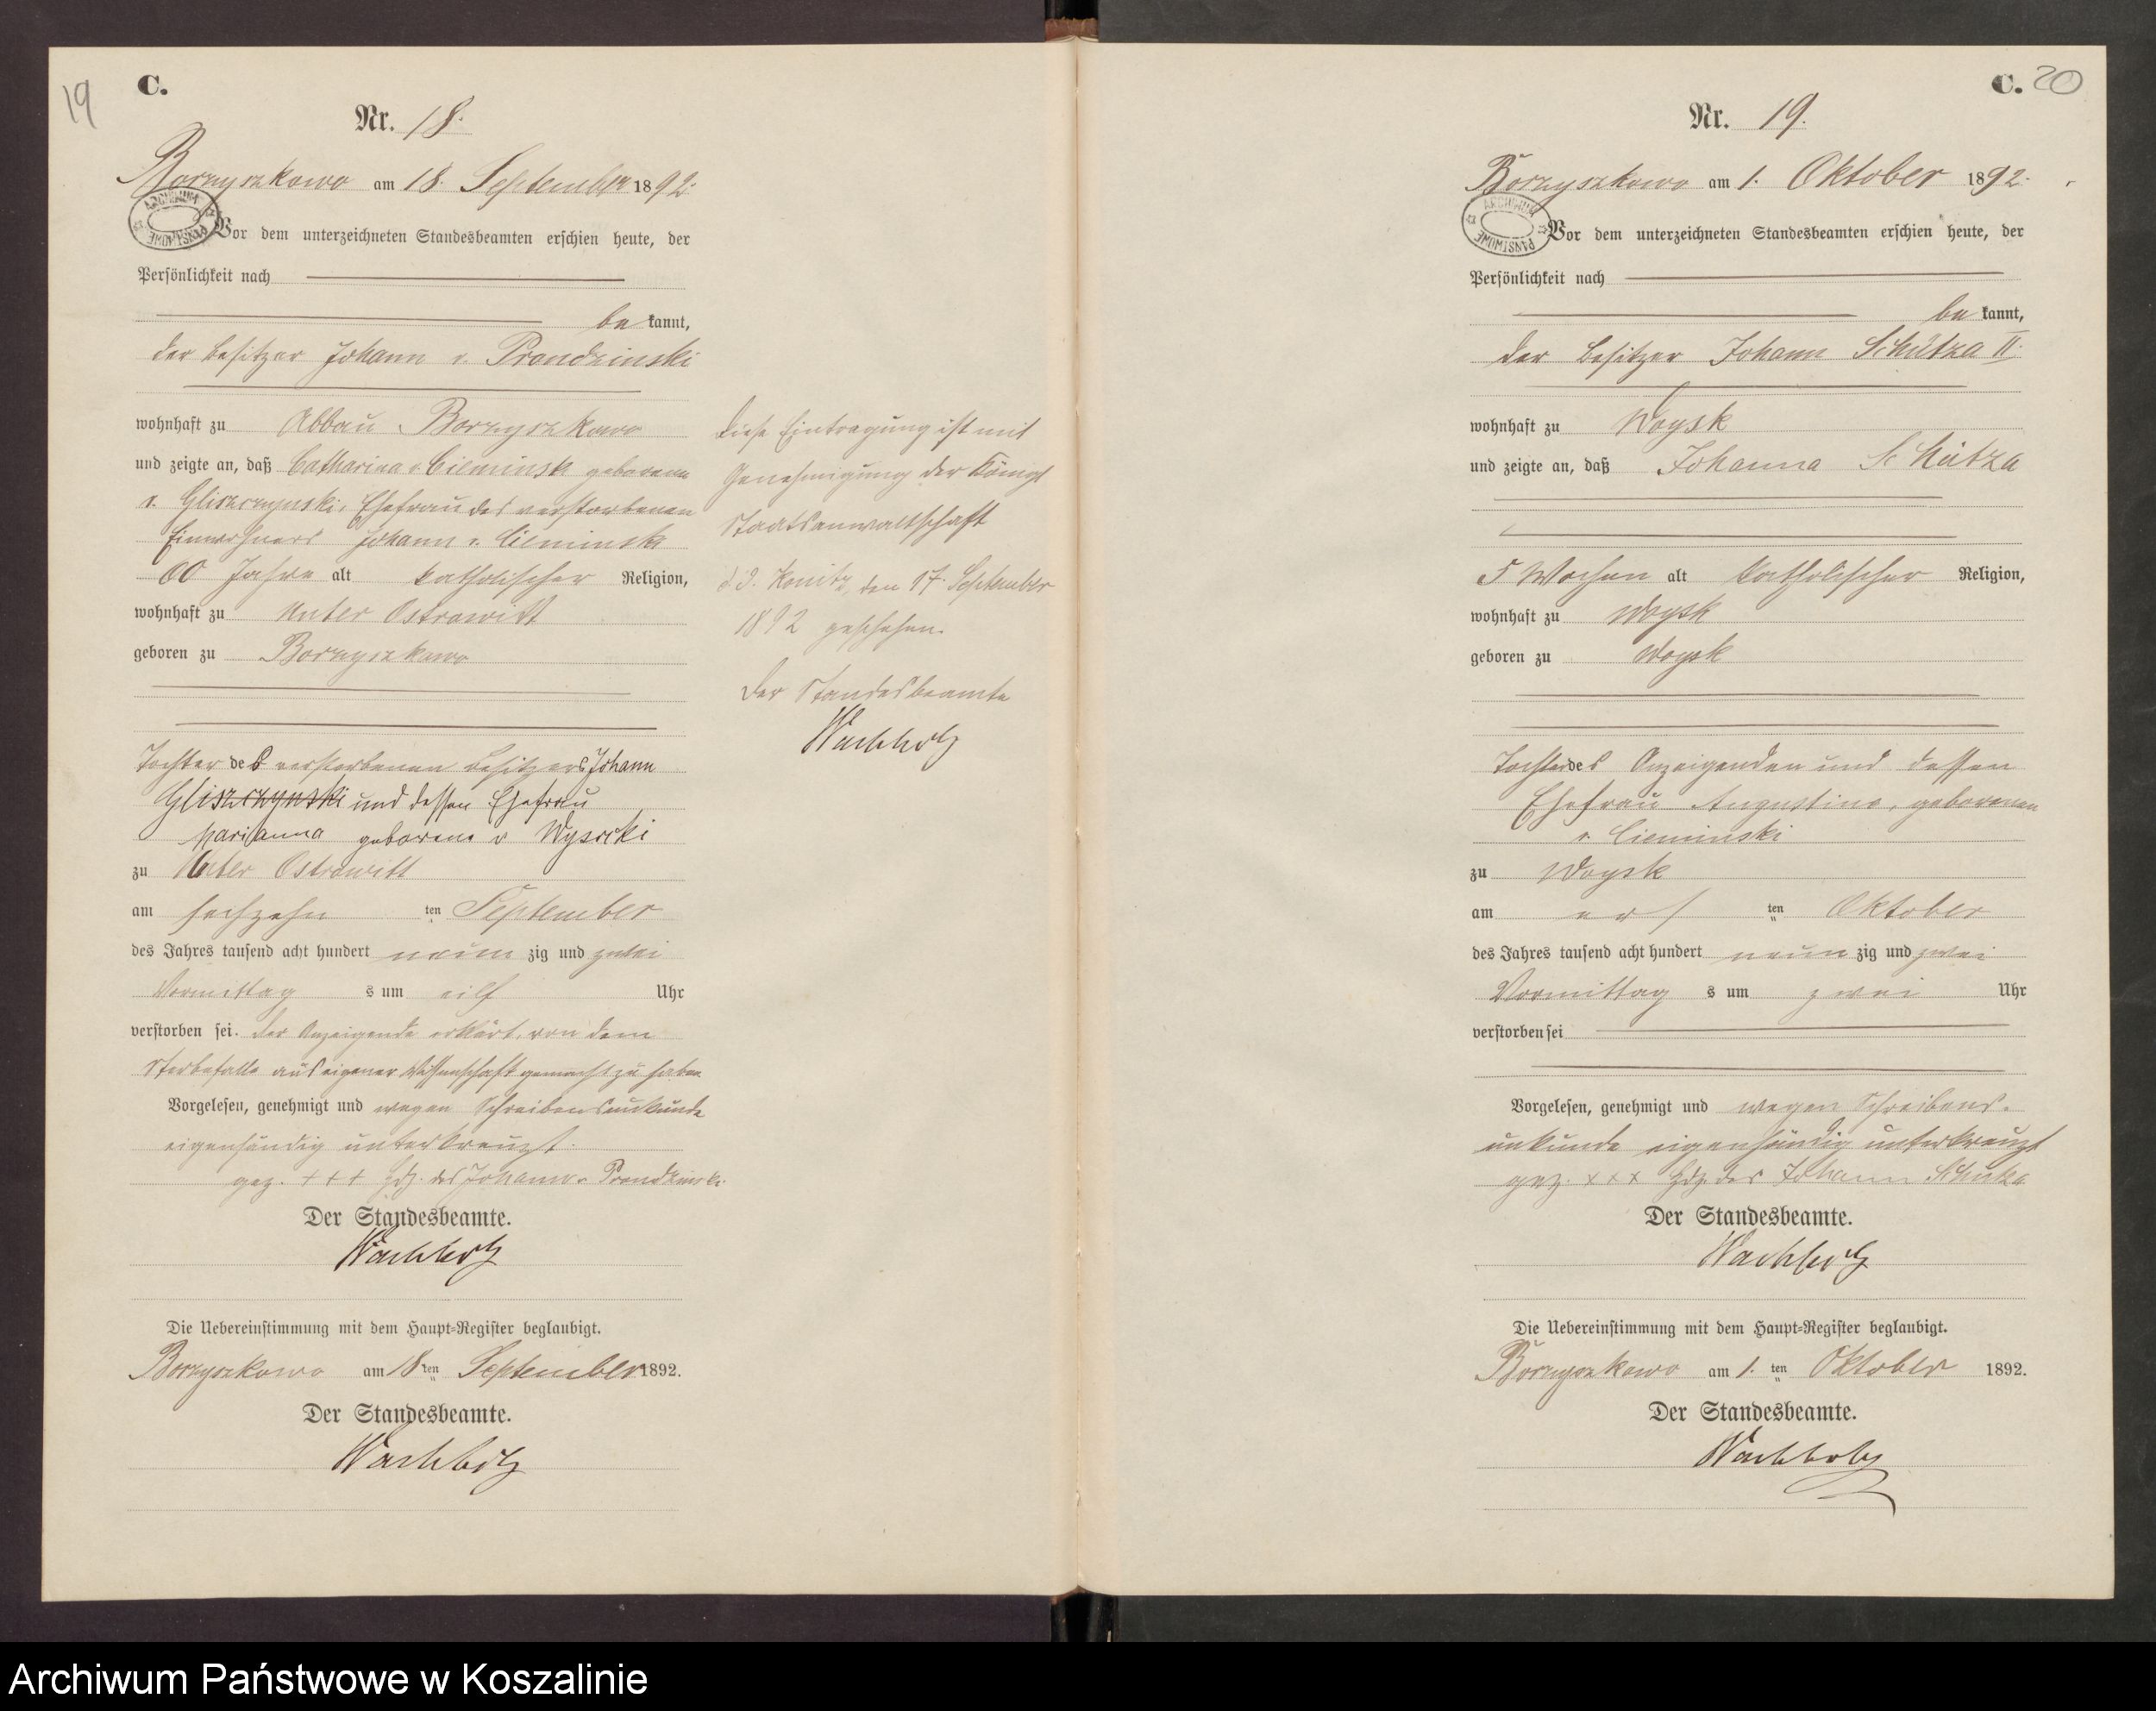 19
C.
Nr. 18.
Borzyszkowo am 18. September 1892.
ARCHIWUM PAŃSTWOWE
Vor dem unterzeichneten Standesbeamten erschien heute, der
Persönlichkeit nach
be kannt,
der Besitzer Johann v. Prondzinski
wohnhaft zu Abbau Borzyszkowo
und zeigte an, daß Catharina v. Cieminsk geborene
v. Gliszczynski, Ehefrau des verstorbenen
Einwohners Johann v. Cieminsk
60 Jahre alt katholischer Religion,
wohnhaft zu Unter Ostrowitt
geboren zu Borzyszkowo
Tochter des verstorbenen Besitzers Johann
Gliszczynski und dessen Ehefrau
Marianna geborene v Wysocki
zu Unter Ostrowitt
am sechzehn ten September
des Jahres tausend acht hundert neun zig und zwei
Vormittag s um eilf Uhr
verstorben sei. Der Anzeigende erklärt, von dem
Sterbefalle aus eigener Wissenschaft gemacht zu haben
Vorgelesen, genehmigt und wegen Schreibensunkunde
eigenhändig unterkreuzt.
gez. + + + Hdz. des Johann v Prondzinski
Der Standesbeamte.
Wachholz
Die Uebereinstimmung mit dem Haupt-Register beglaubigt.
Borzyszkowo am 18 ten September 1892.
Der Standesbeamte.
Wachholz
Diese Eintragung ist mit
Genehmigung der Königl
Staatsanwaltschaft
d. d. Konitz, den 17. September
1892 geschehen.
Der Standesbeamte
Wachholz
C. 20
Nr. 19.
Borzyszkowo am 1. Oktober 1892.
ARCHIWUM PAŃSTWOWE
Vor dem unterzeichneten Standesbeamten erschien heute, der
Persönlichkeit nach
be kannt,
der Besitzer Johann Schütza II.
wohnhaft zu Woysk
und zeigte an, daß Johanna Schütza
5 Wochen alt katholischer Religion,
wohnhaft zu Woysk
geboren zu Woysk
Tochter des Anzeigenden und dessen
Ehefrau Augustine, geborenen
v. Cieminski
zu Woysk
am ers ten Oktober
des Jahres tausend acht hundert neun zig und zwei
Vormittag s um zwei Uhr
verstorben sei
Vorgelesen, genehmigt und wegen Schreibens-
unkunde eigenhändig unterkreuzt
gez. x x x Hdz. des Johann Schütza
Der Standesbeamte.
Wachholz
Die Uebereinstimmung mit dem Haupt-Register beglaubigt.
Borzyszkowo am 1. ten Oktober 1892.
Der Standesbeamte.
Wachholz
Archiwum Państwowe w Koszalinie